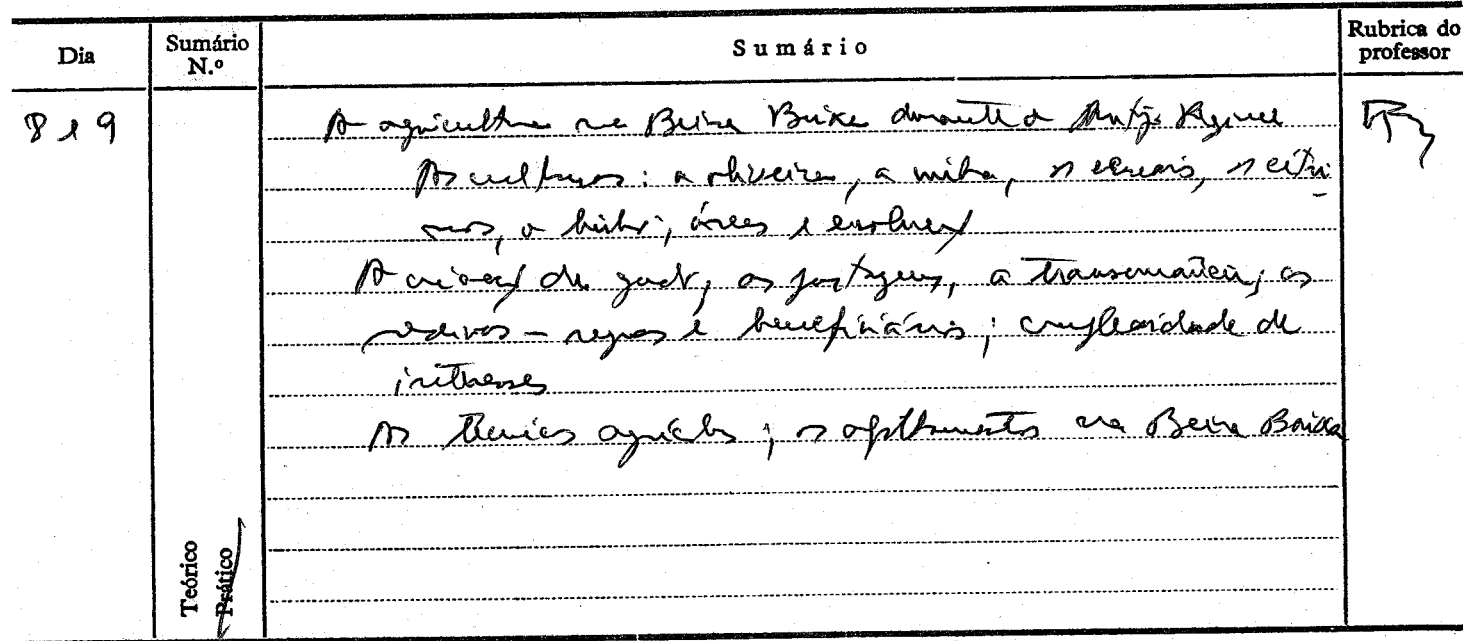 Dia
Sumário N.º
Sumário
Rubrica do professor
8 e 9
A agricultura na Beira Baixa durante o Antigo Regime
As culturas: a oliveira, a vinha, os cereais, os citri
nos, o linho; áreas e evolução
A criação de gado, as pastagens, a transumância; os
maninhos – regras e beneficiários; complexidade de
interesses
As técnicas agrícolas; os afolhamentos na Beira Baixa
Teórico
Prático